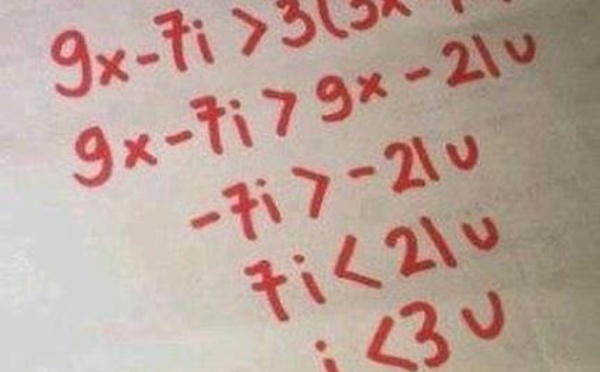 9x-7i > 3(3x-
9x-7i > 9x - 21u
-7i > -21u
7i < 21u
i <3 u